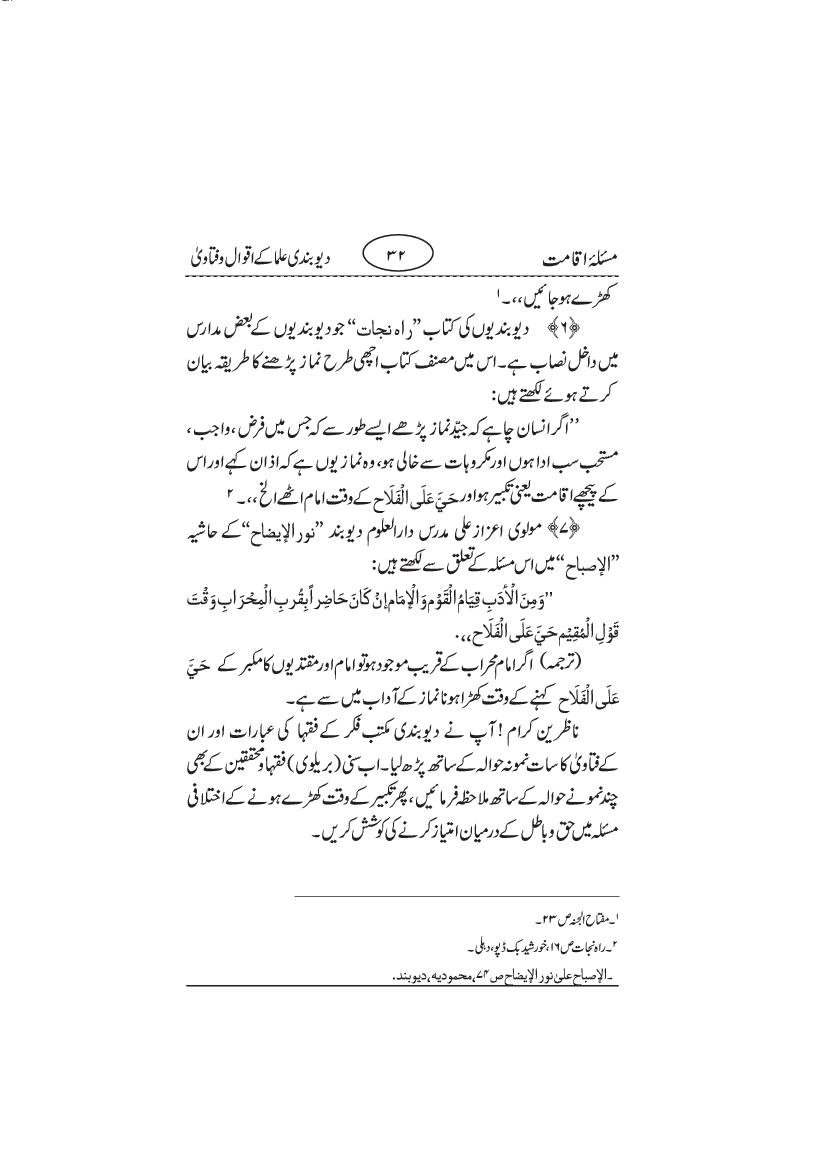 مسئلۂ اقامت ۳۲ دیوبندی علما کے اقوال و فتاویٰ
کھڑے ہو جائیں،،۔۱
﴿۶﴾ دیوبندیوں کی کتاب ”راہ نجات“ جو دیوبندیوں کے بعض مدارس
میں داخل نصاب ہے۔ اس میں مصنف کتاب اچھی طرح نماز پڑھنے کا طریقہ بیان
کرتے ہوئے لکھتے ہیں:
’’اگر انسان چاہے کہ جیّد نماز پڑھے ایسے طور سے کہ جس میں فرض، واجب،
مستحب سب ادا ہوں اور مکروہات سے خالی ہو، وہ نماز یوں ہے کہ اذان کہے اور اس
کے پیچھے اقامت یعنی تکبیر ہو اور حَيَّ عَلَى الْفَلَاح کے وقت امام اٹھے الخ،،۔ ۲
﴿۷﴾ مولوی اعزاز علی مدرس دارالعلوم دیوبند ”نور الإيضاح“ کے حاشیہ
”الإصباح“ میں اس مسئلہ کے تعلق سے لکھتے ہیں:
”وَمِنَ الْأَدَبِ قِيَامُ الْقَوْمِ وَالْإِمَامِ إنْ كَانَ حَاضِراً بِقُربِ الْمِحْرَابِ وَقْتَ
قَوْلِ الْمُقِيْمِ حَيَّ عَلَى الْفَلَاح،،.
(ترجمہ) اگر امام محراب کے قریب موجود ہو تو امام اور مقتدیوں کا مکبر کے حَيَّ
عَلَى الْفَلَاح کہنے کے وقت کھڑا ہونا نماز کے آداب میں سے ہے۔
ناظرین کرام! آپ نے دیوبندی مکتب فکر کے فقہا کی عبارات اور ان
کے فتاویٰ کا سات نمونہ حوالہ کے ساتھ پڑھ لیا۔ اب سنی (بریلوی) فقہا و محققین کے بھی
چند نمونے حوالہ کے ساتھ ملاحظہ فرمائیں، پھر تکبیر کے وقت کھڑے ہونے کے اختلافی
مسئلہ میں حق و باطل کے درمیان امتیاز کرنے کی کوشش کریں۔
۱۔ مفتاح الجنہ ص ۲۳۔
۲۔ راہ نجات ص ۱۶، خورشید بک ڈپو، دہلی۔
۔الإصباح علیٰ نور الإيضاح ص ۷۴، محمودیه، دیوبند.